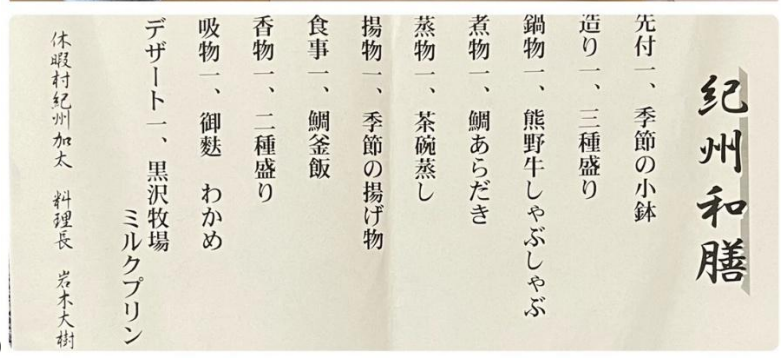 紀州和膳
先付一、季節の小鉢
造り一、三種盛り
鍋物一、熊野牛しゃぶしゃぶ
煮物一、鯛あらだき
蒸物一、茶碗蒸し
揚物一、季節の揚げ物
食事一、鯛釜飯
香物一、二種盛り
吸物一、御麩 わかめ
デザート一、黒沢牧場
ミルクプリン
休暇村紀州加太 料理長 岩木大樹